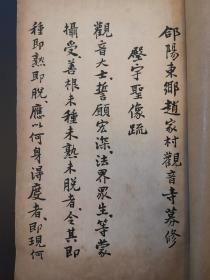 郃陽東鄉趙家村觀音寺募修
殿宇聖像疏
觀音大士、誓願宏深、法界眾生、等蒙
攝受善根未種未熟未脫者令其即
種即熟即脫、應以何身得度者、即現何